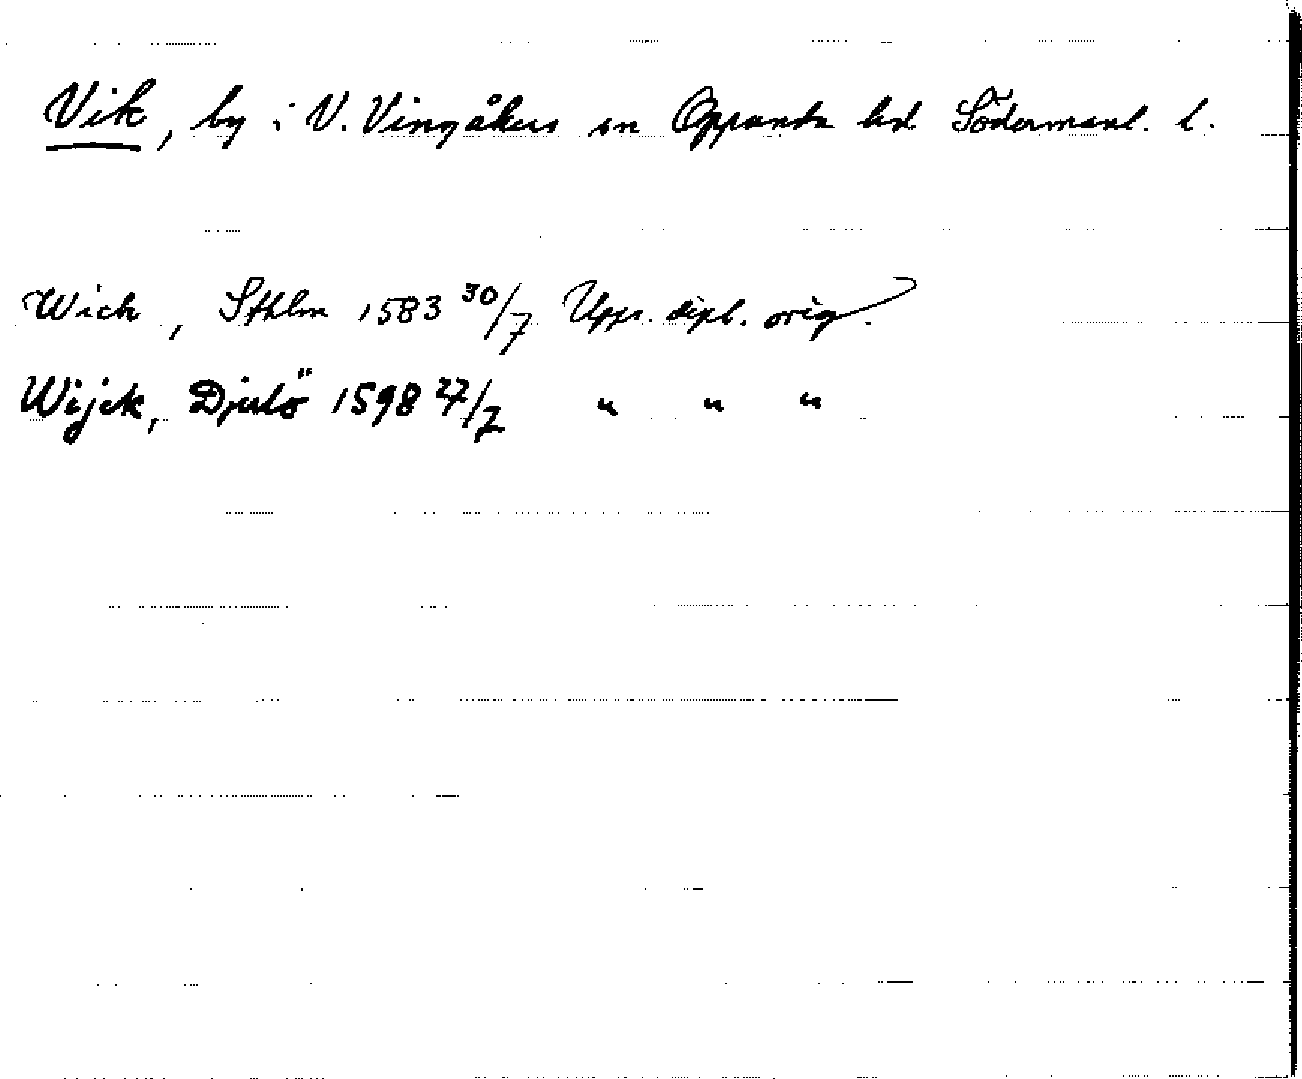 Vik, by i V. Vingåkers sn Oppunda hd. Södermanl. l.
Wick, Sthlm 1583 30/7 Upps. dipl. orig.
Wijck, Djulö 1598 27/7 " " "